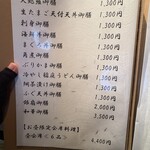 天ぷら御膳 1,300円
生たまご天付天丼御膳 1,300円
刺身御膳 1,300円
海鮮丼御膳 1,300円
まぐろ丼御膳 1,300円
馬煮御膳 1,300円
ぶりかま御膳 1,300円
冷やし稲庭うどん御膳 1,300円
鯛茶漬け御膳 1,500円
ふぐ天丼御膳 1,500円
銀鱈御膳 2,000円
和牛御膳 3,500円
【お昼限定会席料理】
会席膳(6品) 4,400円